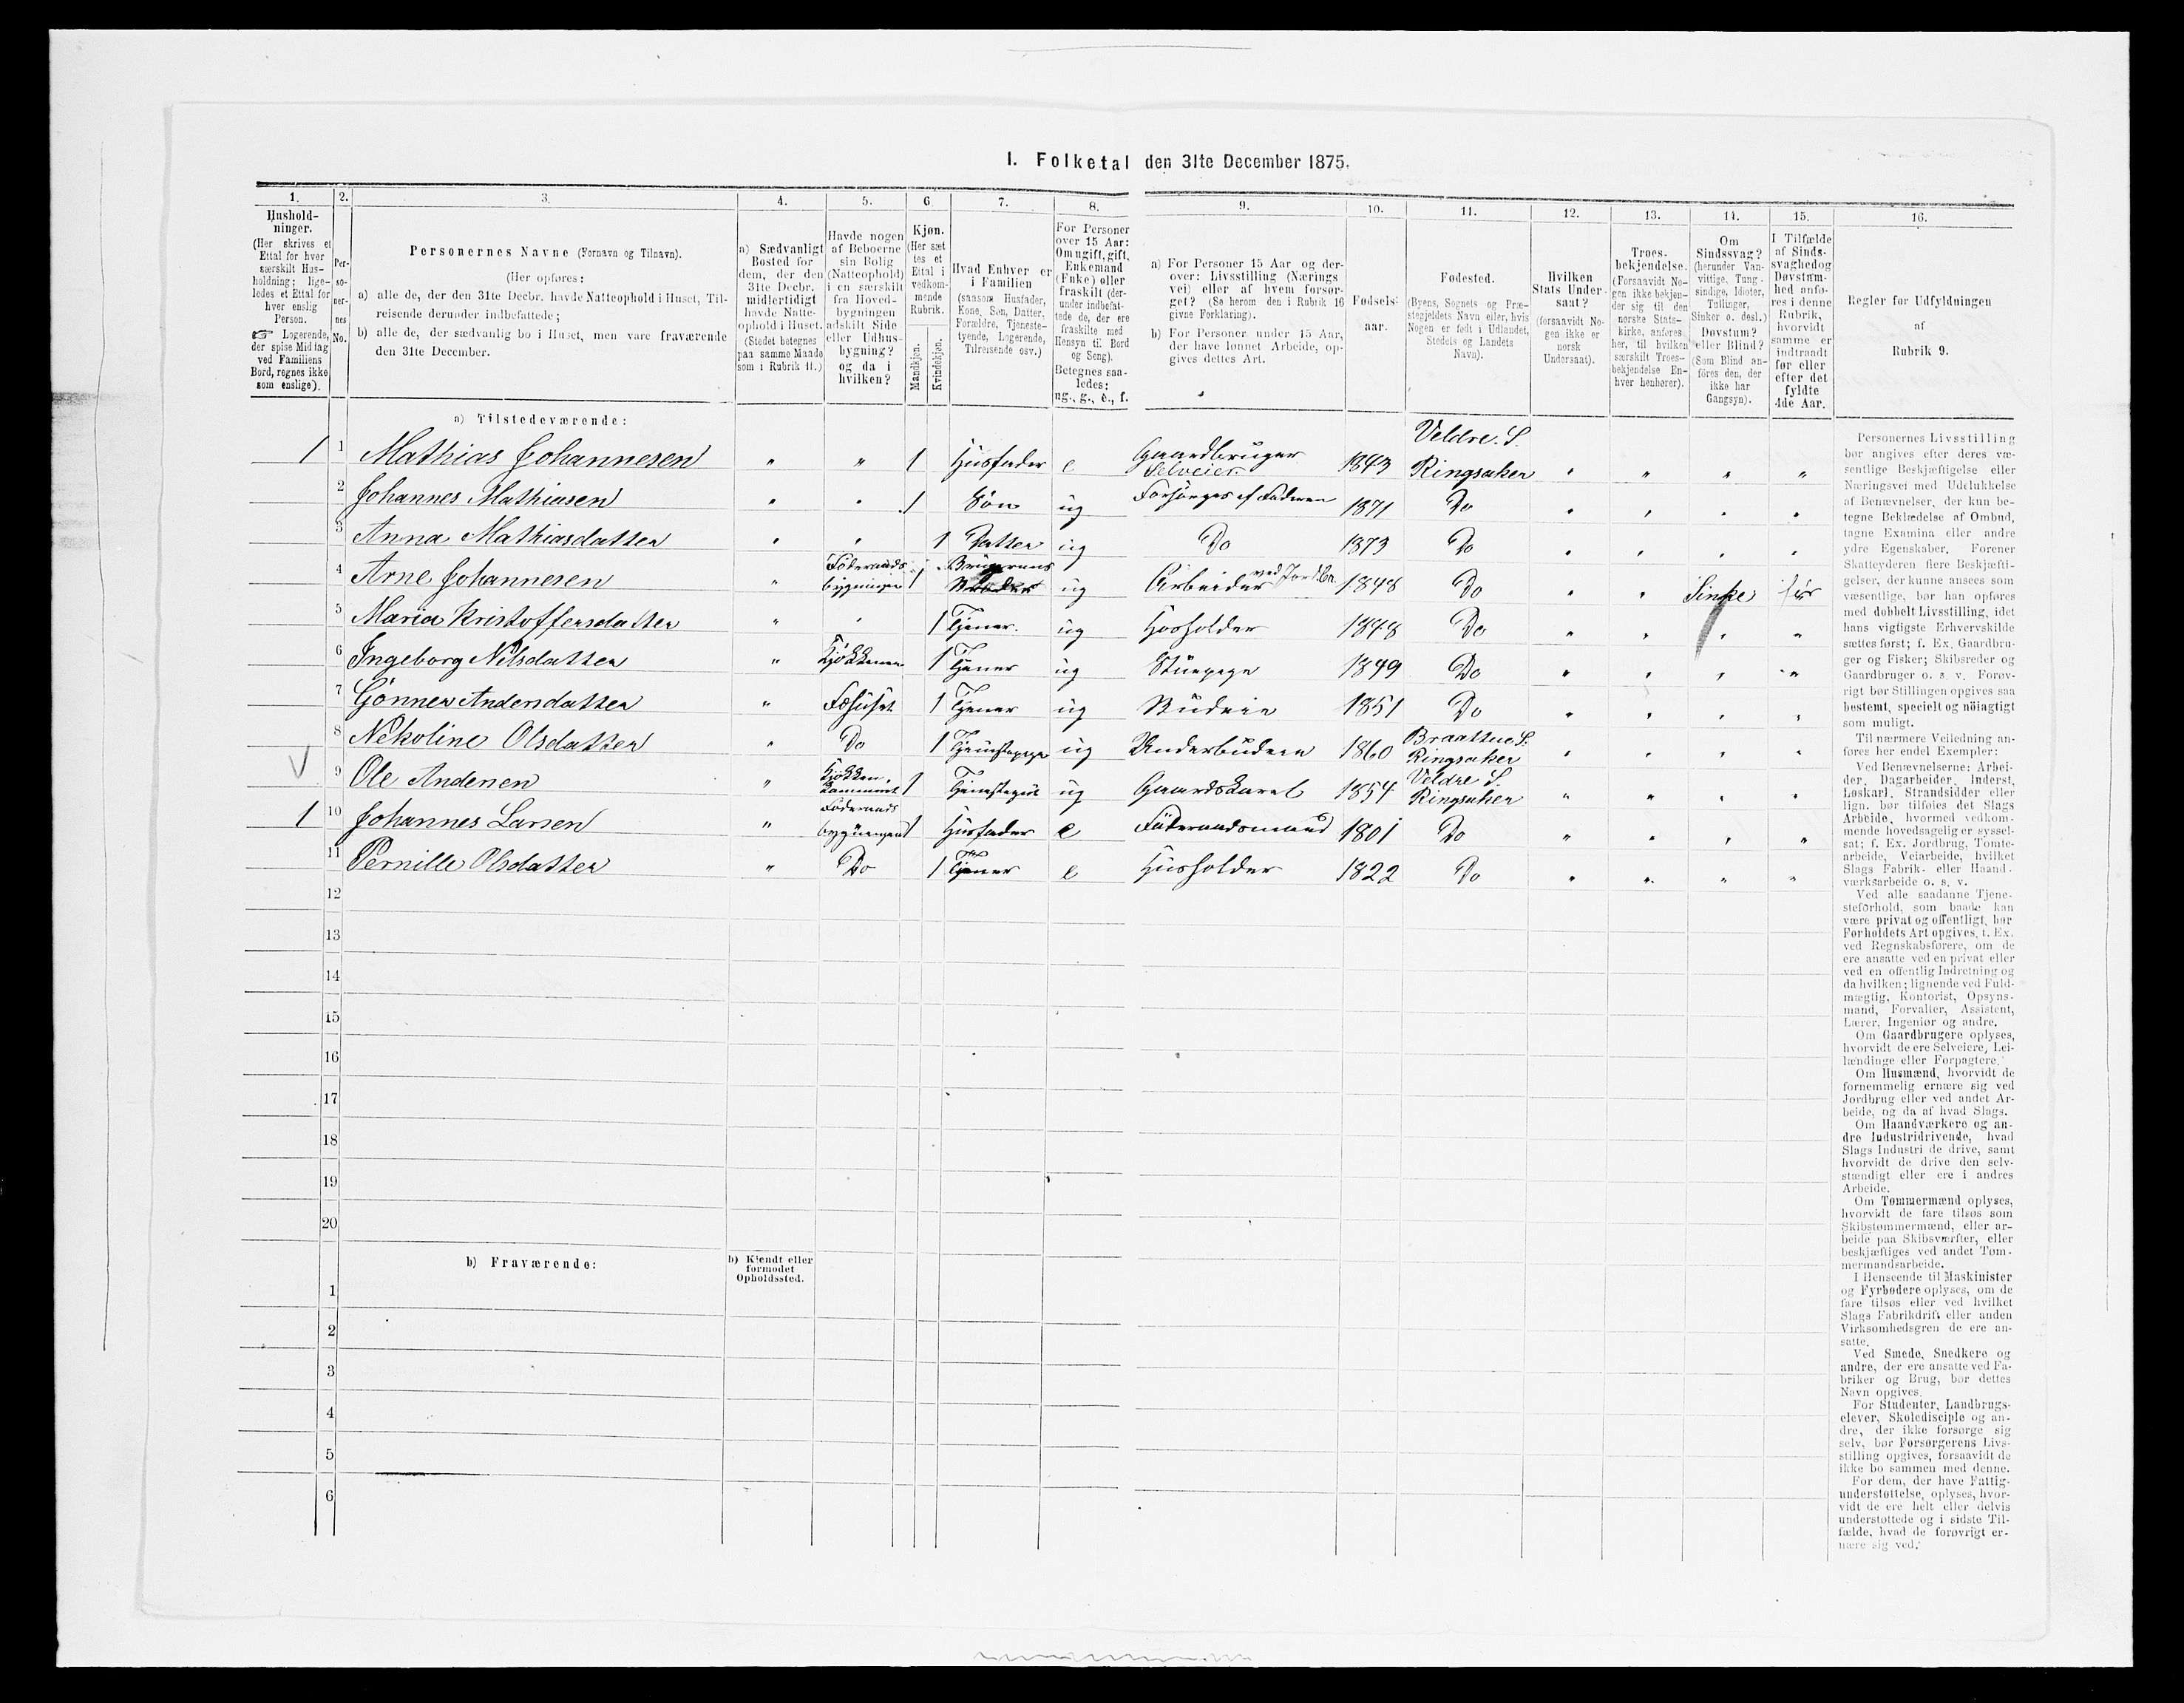 I. Folketal den 31te December 1875.
1.
Hushold-
ninger.
(Her skrives et
Ettal for hver
særskilt Hus-
holdning; lige-
ledes et Ettal for
hver enslig
Person.
☞ Logerende,
der spise Middag
ved Familiens
Bord, regnes ikke
som enslige).
2.
Per-
so-
ner-
nes
No.
3.
Personernes Navne (Fornavn og Tilnavn).
(Her opføres:
a) alle de, der den 31te Decbr. havde Natteophold i Huset, Til-
reisende derunder indbefattede;
b) alle de, der sædvanlig bo i Huset, men vare fraværende
den 31te December.
4.
a) Sædvanligt
Bosted for
dem, der den
31te Decbr.
midlertidigt
havde Natte-
ophold i Huset.
(Stedet betegnes
paa samme Maade
som i Rubrik 11.)
5.
Havde nogen
af Beboerne
sin Bolig
(Natteophold)
i en særskilt
fra Hoved-
bygningen
adskilt Side-
eller Udhus-
bygning?
og da i
hvilken?
6.
Kjøn.
(Her sæt
tes et
Ettal i
vedkom-
mende
Rubrik.
Mandkjøn.
Kvindekjøn.
7.
Hvad Enhver er
i Familien
(saasom Husfader,
Kone, Søn, Datter,
Forældre, Tjeneste-
tyende, Logerende,
Tilreisende osv.)
8.
For Personer
over 15 Aar:
Om ugift, gift,
Enkemand
(Enke) eller
fraskilt (der-
under indbefat-
tede de, der ere
fraskilte med
Hensyn til Bord
og Seng).
Betegnes saa-
ledes:
ug., g., e., f.
9.
a) For Personer 15 Aar og der-
over: Livsstilling (Nærings
vei) eller af hvem forsør-
get? (Se herom den i Rubrik 16
givne Forklaring).
b) For Personer under 15 Aar,
der have lønnet Arbeide, op-
gives dettes Art.
10.
Fødsels-
aar.
11.
Fødested.
(Byens, Sognets og Præ-
stegjeldets Navn eller, hvis
Nogen er født i Udlandet,
Stedets og Landets
Navn).
12.
Hvilken
Stats Under-
saat?
(forsaavidt No-
gen ikke er
norsk
Undersaat).
13.
Troes-
bekjendelse.
(Forsaavidt No-
gen ikke bekjen-
der sig til den
norske Stats-
kirke, anføres
her, til hvilken
særskilt Troes-
bekjendelse En-
hver henhører).
14.
Om
Sindssvag?
(herunder Van-
vittige, Tung-
sindige, Idioter,
Tullinger,
Sinker o. desl.)
Døvstum?
eller Blind?
(Som Blind an-
føres den, der
ikke har
Gangsyn).
15.
I Tilfælde
af Sinds-
svaghed og
Døvstum-
hed anfø-
res i denne
Rubrik,
hvorvidt
samme er
indtraadt
før eller
efter det
fyldte
4de Aar.
16.
Regler for Udfyldningen
af
Rubrik 9.
a) Tilstedeværende:
1 1 Mathias Johannesen " " 1 Husfader e Gaardbruger Selveier 1843 Veldre. S. Ringsaker " " " "
2 Johannes Mathiasen " " 1 Søn ug Forsørges af Faderen 1871 Do " " " "
3 Anna Mathiasdatter " " 1 Datter ug Do 1873 Do " " " "
4 Arne Johannesen " Føderaads bygningen 1 Brugerens ug Arbeider ved Jordbr. 1848 Do " " Sinke før
5 Maria Kristoffersdatter " " 1 Tjener. ug Husholder 1848 Do " " " "
6 Ingeborg Nilsdatter " Kjøkkenet 1 Tjener ug Stuepige 1849 Do " " " "
7 Gønner Andersdatter " Fæhuset 1 Tjener ug Budeie 1851 Do " " " "
8 Nekoline Olsdatter " Do 1 Tjenestepige ug Underbudeie 1860 Braattue S. Ringsaker " " " "
9 Ole Andersen " Kjøkken Kammeret 1 ug Gaardskarl 1854 Veldre S. Ringsaker " " " "
1 10 Johannes Larsen " Føderaads bygningen 1 Husfader e Føderaadsmand 1801 Do " " " "
11 Pernille Olsdatter " Do 1 Tjener e Husholder 1822 Do " " " "
12
13
14
15
16
17
18
19
20
b) Fraværende:
b) Kjendt eller
formodet
Opholdssted.
1
2
3
4
5
6
Personernes Livsstilling
bør angives efter deres væ-
sentlige Beskjæftigelse eller
Næringsvei med Udelukkelse
af Benævnelser, der kun be-
tegne Beklædelse af Ombud,
tagne Examina eller andre
ydre Egenskaber. Forener
Skatteyderen flere Beskjæfti-
gelser, der kunne ansees som
væsentlige, bør han opføres
med dobbelt Livsstilling, idet
hans vigtigste Erhvervskilde
sættes først; f. Ex. Gaardbru-
ger og Fisker; Skibsreder og
Gaardbruger o. s. v. Forøv-
rigt bør Stillingen opgives saa
bestemt, specielt og nöiagtigt
som muligt.
Til nærmere Veiledning an-
føres her endel Exempler:
Ved Benævnelserne: Arbei-
der, Dagarbeider, Inderst,
Løskarl, Strandsidder eller
lign. bør tilføies det Slags
Arbeide, hvormed vedkom-
mende hovedsagelig er syssel-
sat; f. Ex. Jordbrug, Tomte-
arbeide, Veiarbeide, hvilket
Slags Fabrik- eller Haand-
værksarbeide o. s. v.
Ved alle saadanne Tjene-
steforhold, som baade kan
være privat og offentligt, bør
Forholdets Art opgives, f. Ex.
ved Regnskabsførere, om de
ere ansatte ved en privat eller
ved en offentlig Indretning og
da hvilken; lignende ved Fuld-
mægtig, Kontorist, Opsyns-
mand, Forvalter, Assistent,
Lærer, Ingeniør og andre.
Om Gaardbrugere oplyses,
hvorvidt de ere Selveiere, Lei-
lændinge eller Forpagtere.
Om Husmænd, hvorvidt de
fornemmelig ernære sig ved
Jordbrug eller ved andet Ar-
beide, og da af hvad Slags.
Om Haandværkere og an-
dre Industridrivende, hvad
Slags Industri de drive, samt
hvorvidt de drive den selv-
stændigt eller ere i andres
Arbeide.
Om Tømmermænd oplyses,
hvorvidt de fare tilsøs som
Skibstømmermænd, eller ar-
beide paa Skibsværfter, eller
beskjæftiges ved andet Tøm-
mermandsarbeide.
I Henseende til Maskinister
og Fyrbødere oplyses, om de
fare tilsøs eller ved hvilket
Slags Fabrikdrift eller anden
Virksomhedsgren de ere an-
satte.
Ved Smede, Snedkere og
andre, der ere ansatte ved Fa-
briker og Brug, bør dettes
Navn opgives.
For Studenter, Landbrugs-
elever, Skoledisciple og an-
dre, der ikke forsørge sig
selv, bør Forsørgerens Livs-
stilling opgives, forsaavidt de
ikke bo sammen med denne.
For dem, der have Fattig-
understøttelse, oplyses, hvor-
vidt de ere helt eller delvis
understøttede og i sidste Til-
fælde, hvad de forøvrigt er-
nære sig ved.